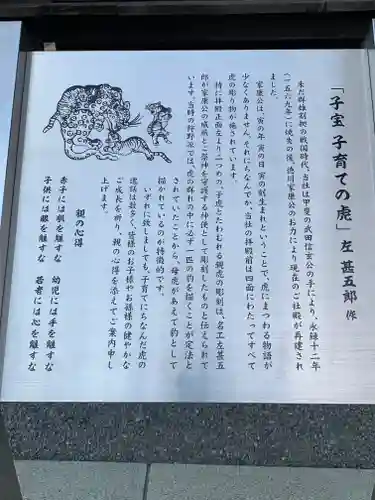 「子宝 子育ての虎」左 甚五郎 作
未だ群雄割拠の戦国時代、当社は甲斐の武田信玄公の手により、永禄十二年
（一五六九年）に焼失の後、徳川家康公のお力により現在のご社殿が再建され
ました。
家康公は、寅の年、寅の日、寅の刻生まれということで、虎にまつわる物語が
少なくありません。それにちなんでか、当社の拝殿前は四面にわたってすべて
虎の彫り物が施されています。
特に拝殿正面左より二つめの、子虎とたわむれる親虎の彫刻は、名工左甚五
郎が家康公の威厳とご祭神を守護する神使として彫刻したものと伝えられて
います。当時の狩野派では、虎の群れの中に必ず一匹の豹を描くことが定法と
されていたことから、母虎があえて豹として
描かれているのが特徴的です。
いずれに致しましても、子育てにちなんだ虎の
逸話は数多く、皆様のお子様やお孫様の健やかな
ご成長を祈り、親の心得を添えてご案内申し
上げます。
親の心得
赤子には肌を離すな　幼児には手を離すな
子供には眼を離すな　若者には心を離すな